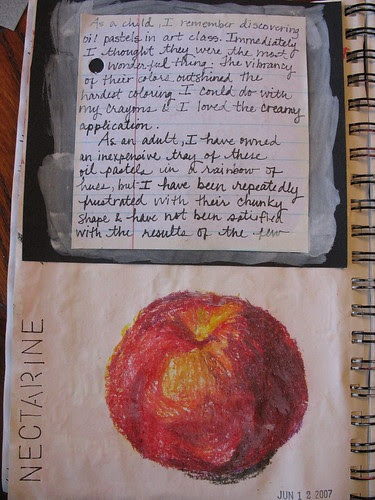 As a child, I remember discovering
oil pastels in art class. Immediately
I thought they were the most
wonderful thing. The vibrancy
of their colors outshined the
hardest coloring I could do with
my crayons & I loved the creamy
application.
As an adult, I have owned
an inexpensive tray of these
oil pastels in a rainbow of
hues, but I have been repeatedly
frustrated with their chunky
shape & have not been satisfied
with the results of the few
NECTARINE
JUN 12 2007